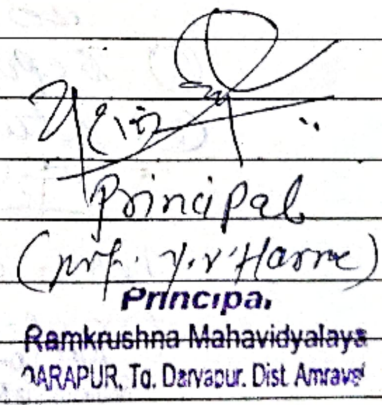 Principal
(prof. Y.V. Harne)
Principal
Ramkrushna Mahavidyalaya
DARAPUR, Tq. Daryapur. Dist. Amravati